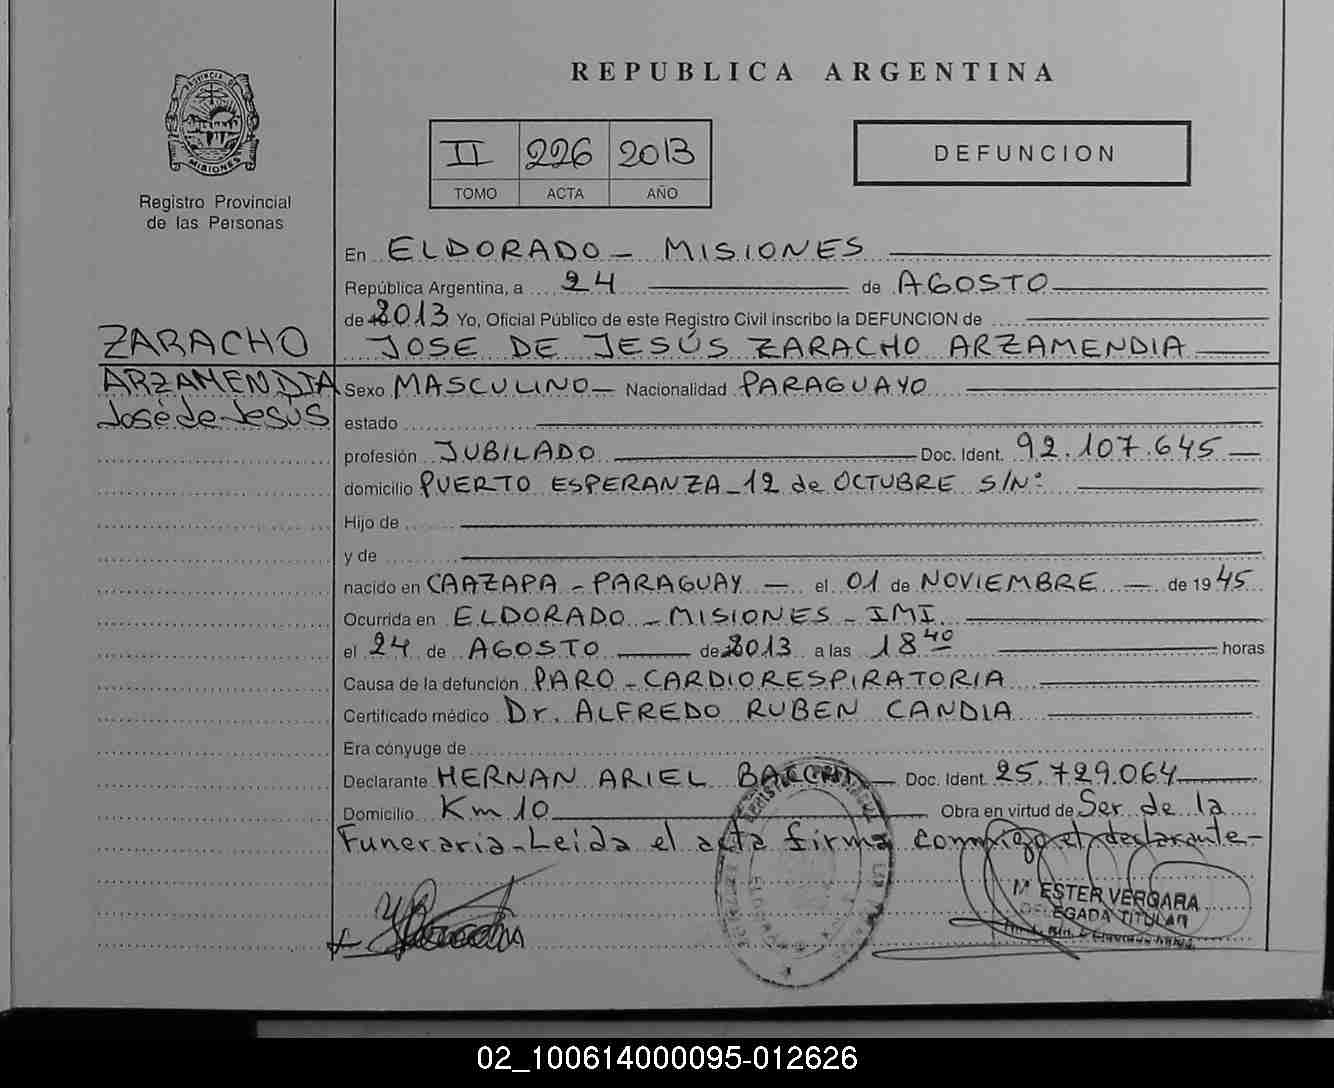 REPUBLICA ARGENTINA
PROVINCIA DE MISIONES
Registro Provincial
de las Personas
II 226 2013
TOMO ACTA AÑO
DEFUNCION
ZARACHO
ARZAMENDIA
José de Jesús
En ELDORADO - MISIONES
República Argentina, a 24 de AGOSTO
de 2013 Yo, Oficial Público de este Registro Civil inscribo la DEFUNCION de
JOSE DE JESÚS ZARACHO ARZAMENDIA
Sexo MASCULINO - Nacionalidad PARAGUAYO
estado
profesión JUBILADO Doc. Ident. 92.107.645
domicilio PUERTO ESPERANZA - 12 de OCTUBRE S/Nº
Hijo de
y de
nacido en CAAZAPA - PARAGUAY - el 01 de NOVIEMBRE - de 1945
Ocurrida en ELDORADO - MISIONES - IMI
el 24 de AGOSTO de 2013 a las 18 40 horas
Causa de la defunción PARO - CARDIORESPIRATORIA
Certificado médico Dr. ALFREDO RUBEN CANDIA
Era cónyuge de
Declarante HERNAN ARIEL Doc. Ident. 25.729.064
Domicilio Km 10 Obra en virtud de Ser. de la
Funeraria - Leida el acta firma conmigo el declarante -
Mª ESTER VERGARA
DELEGADA TITULAR
02_100614000095-012626